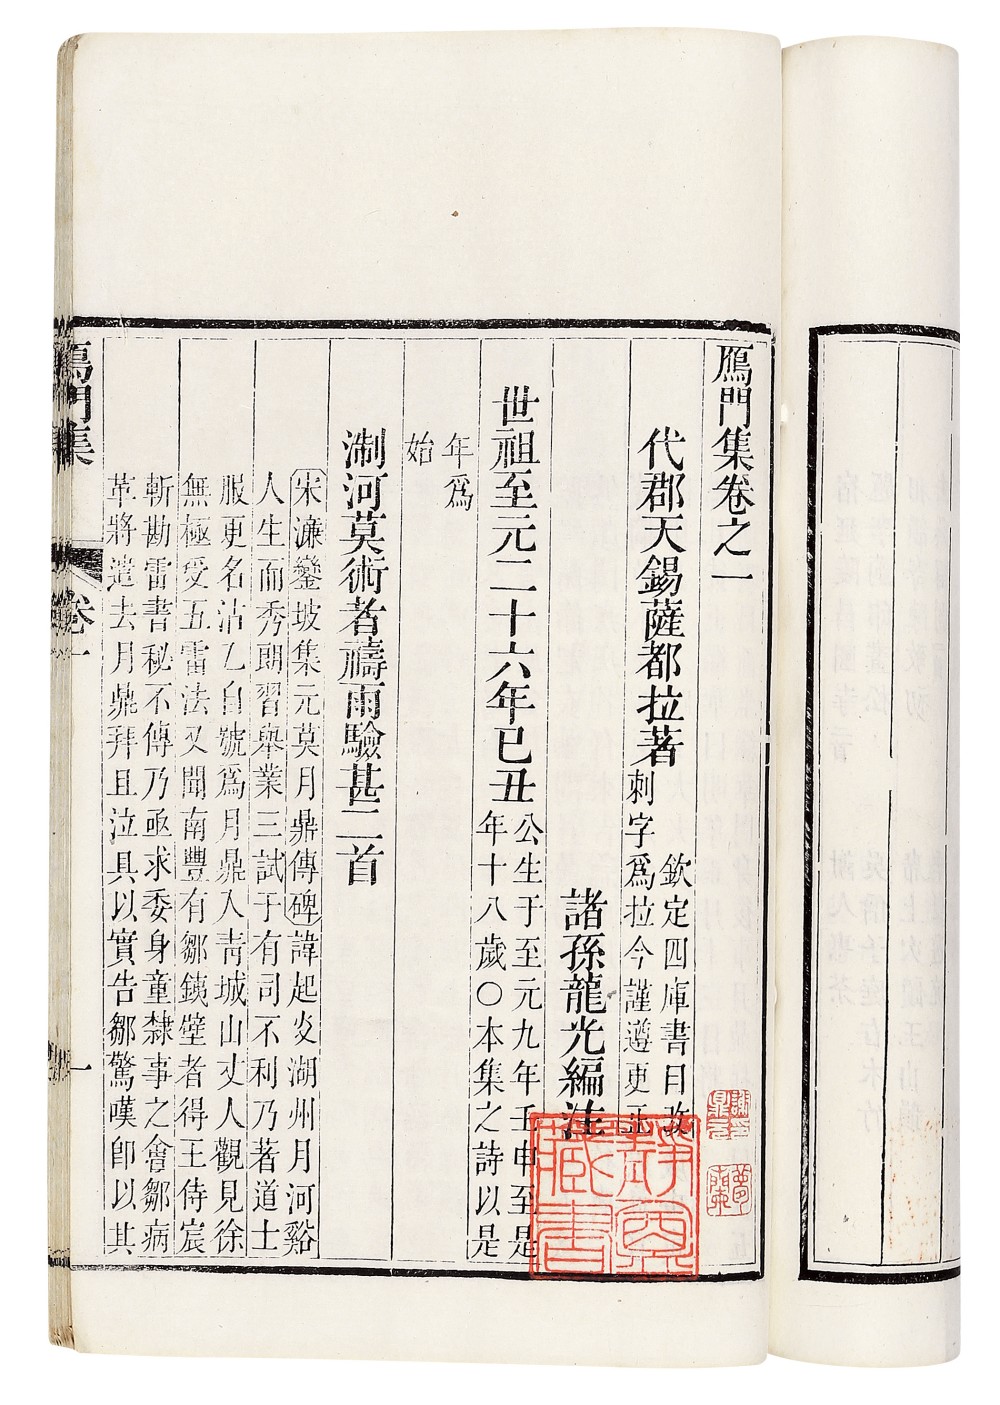 鴈門集卷之一
代郡天錫薩都拉著
欽定四庫書目改
刺字爲拉今謹遵更正
諸孫龍光編注
世祖至元二十六年巳丑
公生于至元九年壬申至是
年十八歲〇本集之詩以是
年爲
始
淛河莫術者禱雨驗甚二首
宋濂鑾坡集元莫月鼎傳碑諱起炎湖州月河谿
人生而秀朗習舉業三試于有司不利乃著道士
服更名洞乙自號爲月鼎入青城山丈人觀見徐
無極受五雷法又聞南豐有鄒鐵壁者得王侍宸
斬勘雷書秘不傳乃亟求委身童隸事之會鄒病
革將遣去月鼎拜且泣具以實告鄒驚嘆卽以其
鴈門集
卷一
一
藏書